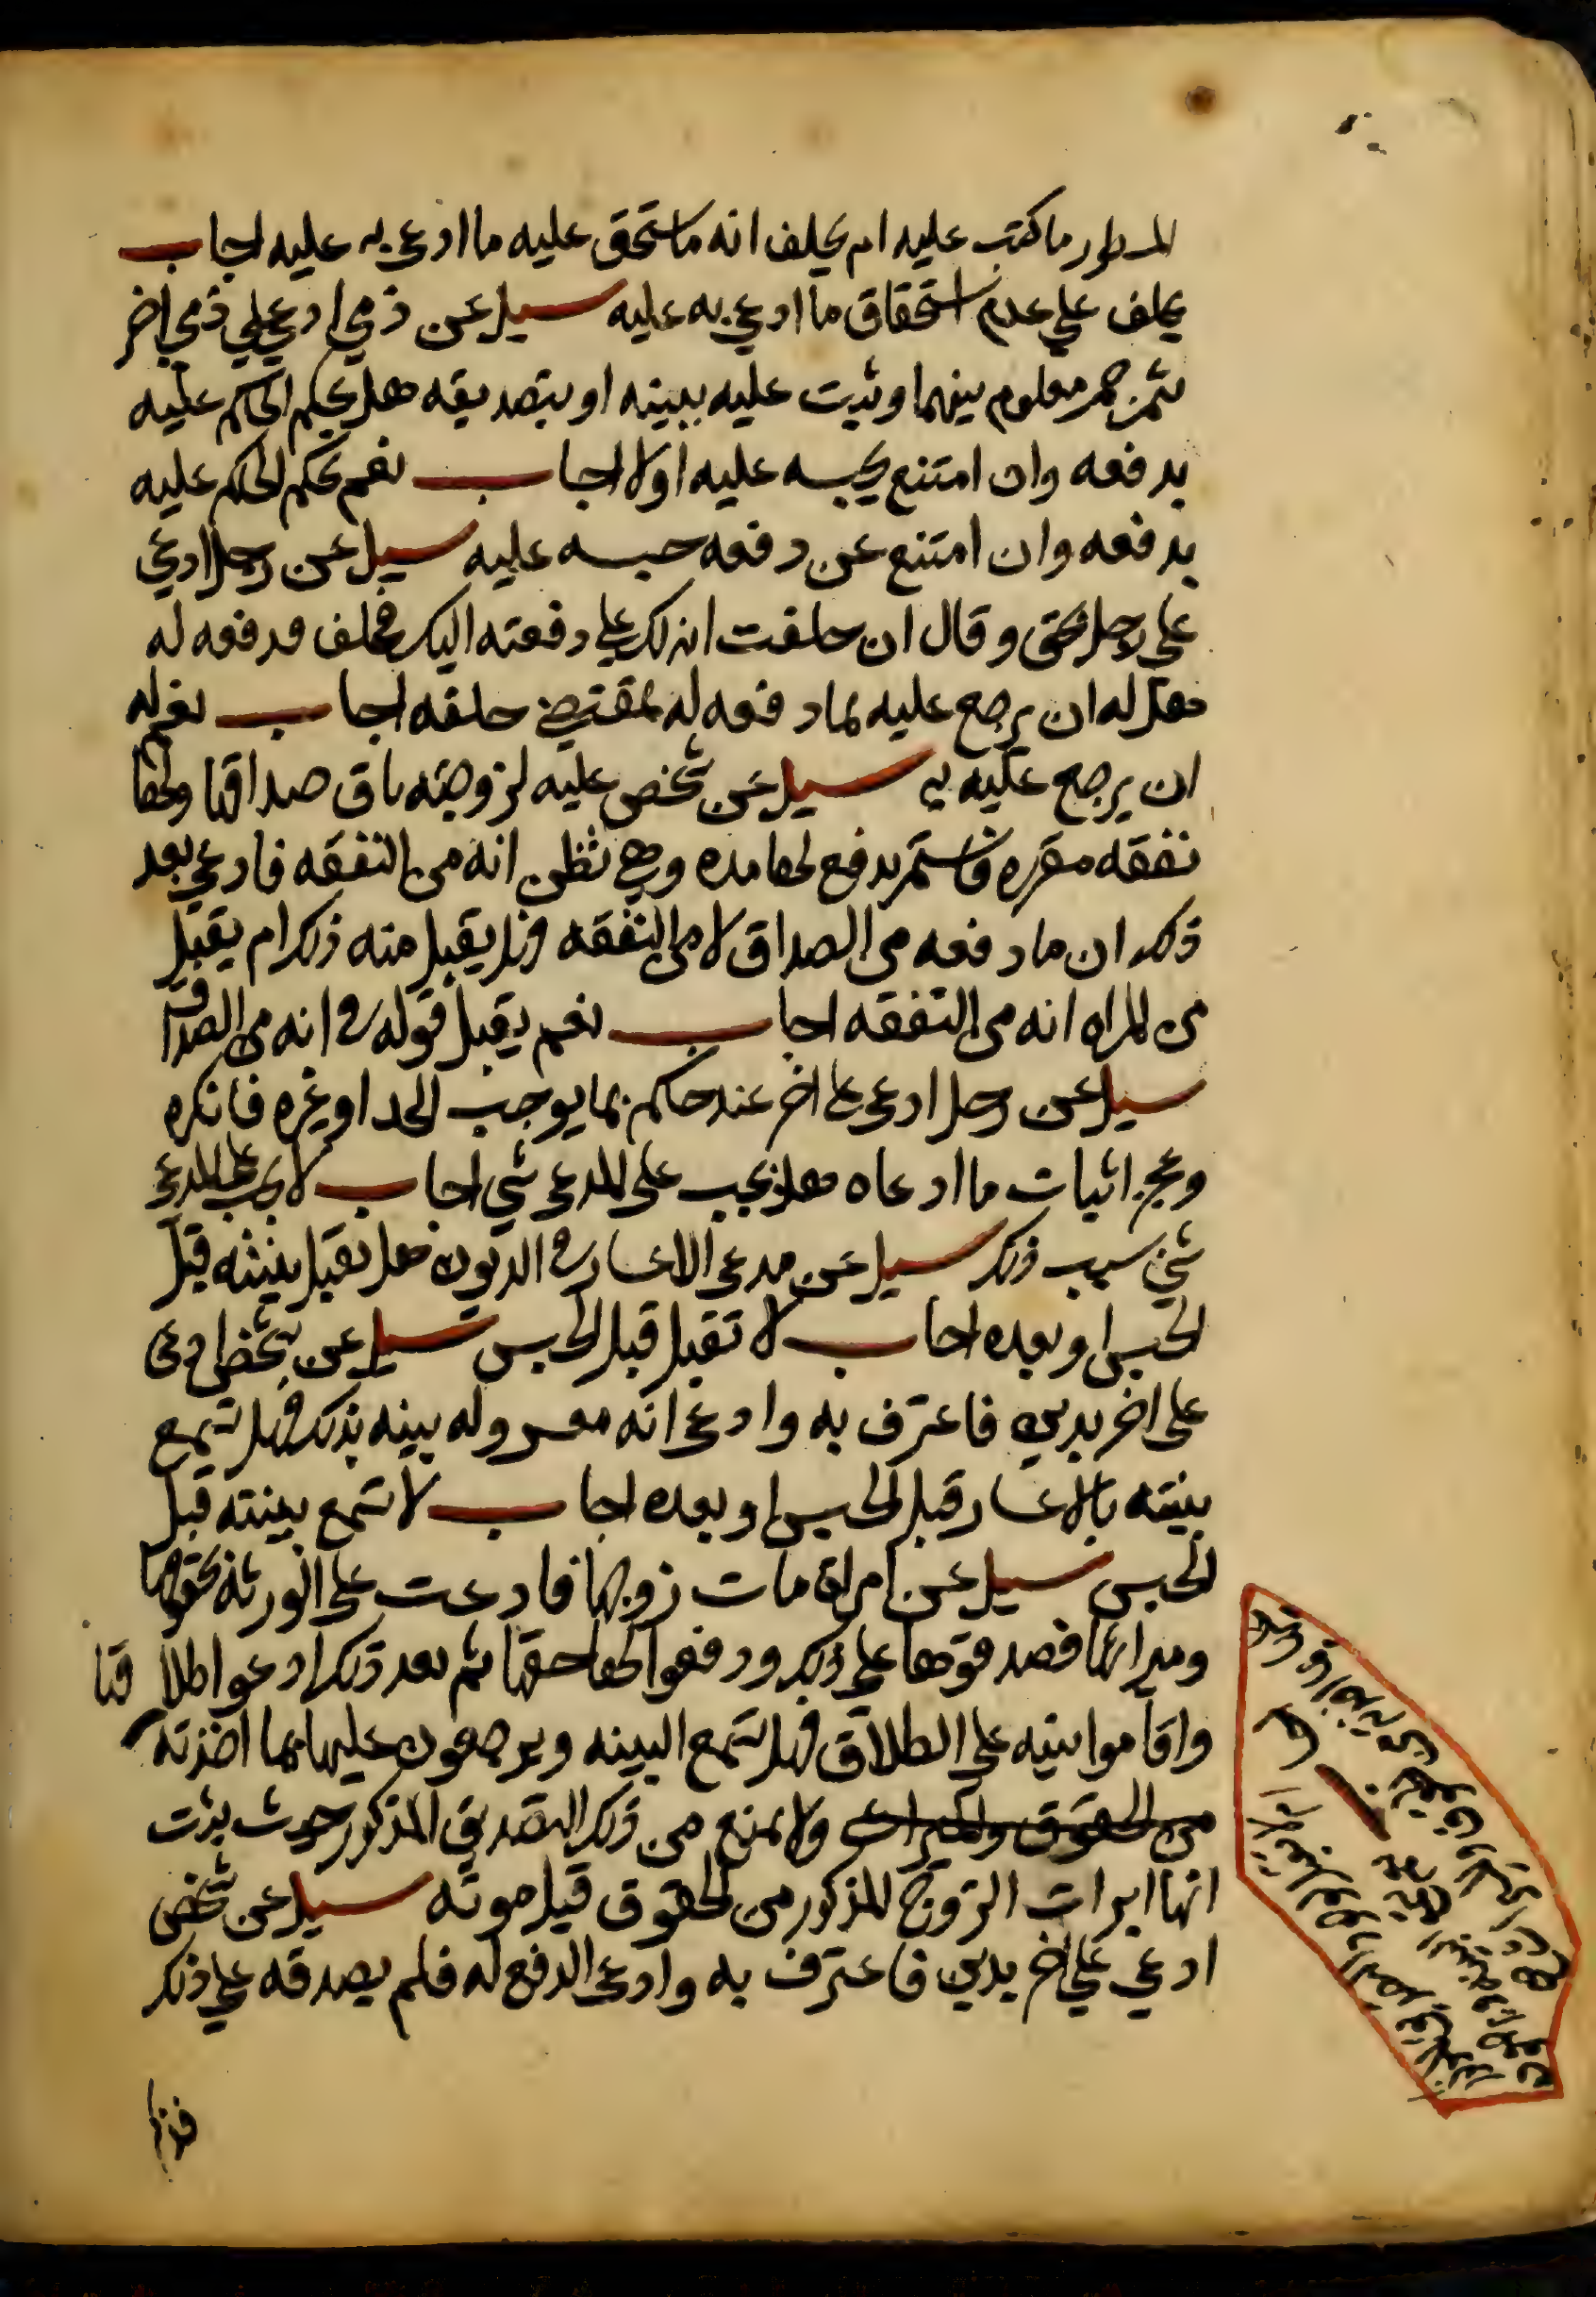 المسطور ما كتب عليه ام يحلف انه ما يستحق عليه ما ادعى به عليه اجاب
يحلف علي عدم استحقاق ما ادعي به عليه سيل عن ذمي ادعي علي ذمي اخر
بثمن خمر معلوم بينهما وثبت عليه ببينه او بتصديقه هل يحكم الحاكم عليه
بدفعه وان امتنع يحبسه عليه اولا اجاب نعم يحكم الحاكم عليه
بدفعه وان امتنع عن دفعه حبسه عليه سيل عن رجل ادعي
علي رجل بحق وقال ان حلفت انه لك علي دفعته اليك فحلف فدفعه له
فهل له ان يرجع عليه بما دفعه له بمقتضي حلفه اجاب نعم له
ان يرجع عليه به سيل عن شخص عليه لزوجته باق صداقها ولها
نفقه مقرره فاستمر يدفع لها مده وهي تظن انه من النفقه فادعي بعد
ذلك ان ما دفعه من الصداق لا من النفقه فهل يقبل منه ذلك ام يقبل
من المراه انه من النفقه اجاب نعم يقبل قوله في انه من الصداق
سيل عن رجل ادعى علي اخر عند حاكم بما يوجب الحد او غيره فانكره
وعجز اثبات ما ادعاه فهل يجب على المدعى شي اجاب لا يجب علي المدعى
شي بسبب ذلك سيل عن مدعى الاعسار في الديون هل تقبل بينته قبل
الحبس او بعده اجاب لا تقبل قبل الحبس سيل عن شخص ادعى
على اخر بدين فاعترف به وادعى انه معسر وله بينه بذلك فهل تسمع
بينته بالاعسار قبل الحبس او بعده اجاب لا تسمع بينته قبل
الحبس سيل عن امراة مات زوجها فادعت على الورثة بحقوقها
وميراثها فصدقوها علي ذلك ودفعوا لها حقها ثم بعد ذلك ادعوا طلاقا
واقاموا بينه علي الطلاق فهل تسمع البينه ويرجعون عليها بما اخذته
من الحقوق والميراث ولا يمنع من ذلك التصديق المذكور حيث ثبت
انها ابرات الزوج المذكور من الحقوق قبل موته سيل عن شخص
ادعي علي اخر بدين فاعترف به وادعى الدفع له فلم يصدقه علي ذلك